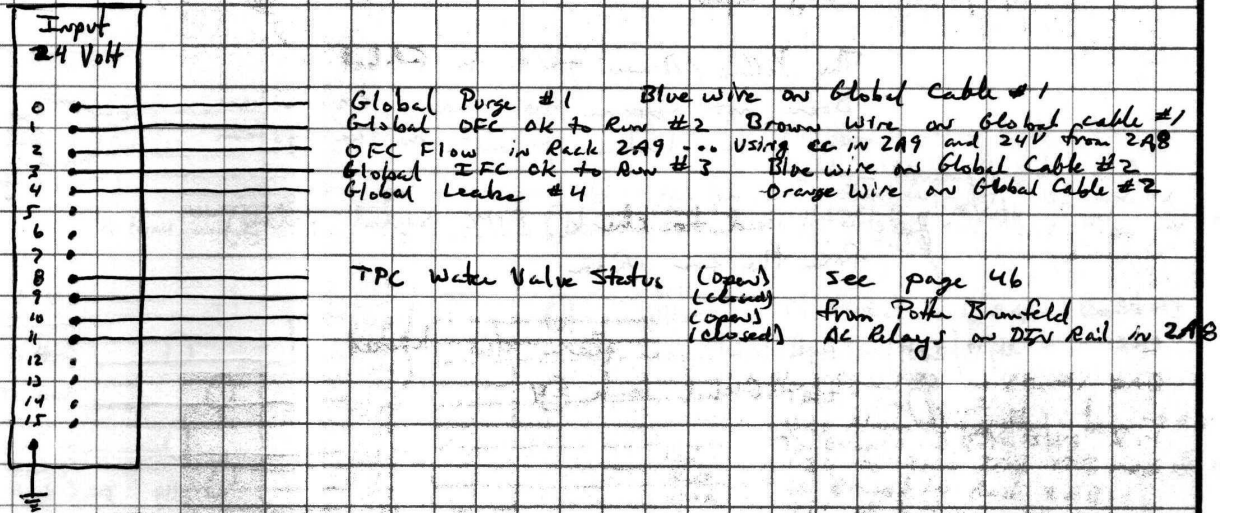 Input
24 Volt
0 Global Purge #1 Blue wire on Global Cable #1
1 Global OFC ok to Run #2 Brown Wire on Global cable #1
2 OFC Flow in Rack 2A9 ... Using in 2A9 and 24V from 2A8
3 Global IFC ok to Run #3 Blue wire on Global Cable #2
4 Global #4 Orange Wire on Global Cable #2
5
6
7
8 TPC Water Valve Status (open) see page 46
9 (closed)
10 (open) from Potter Brumfeld
11 (closed) AC Relays on DIN Rail in 2A8
12
13
14
15